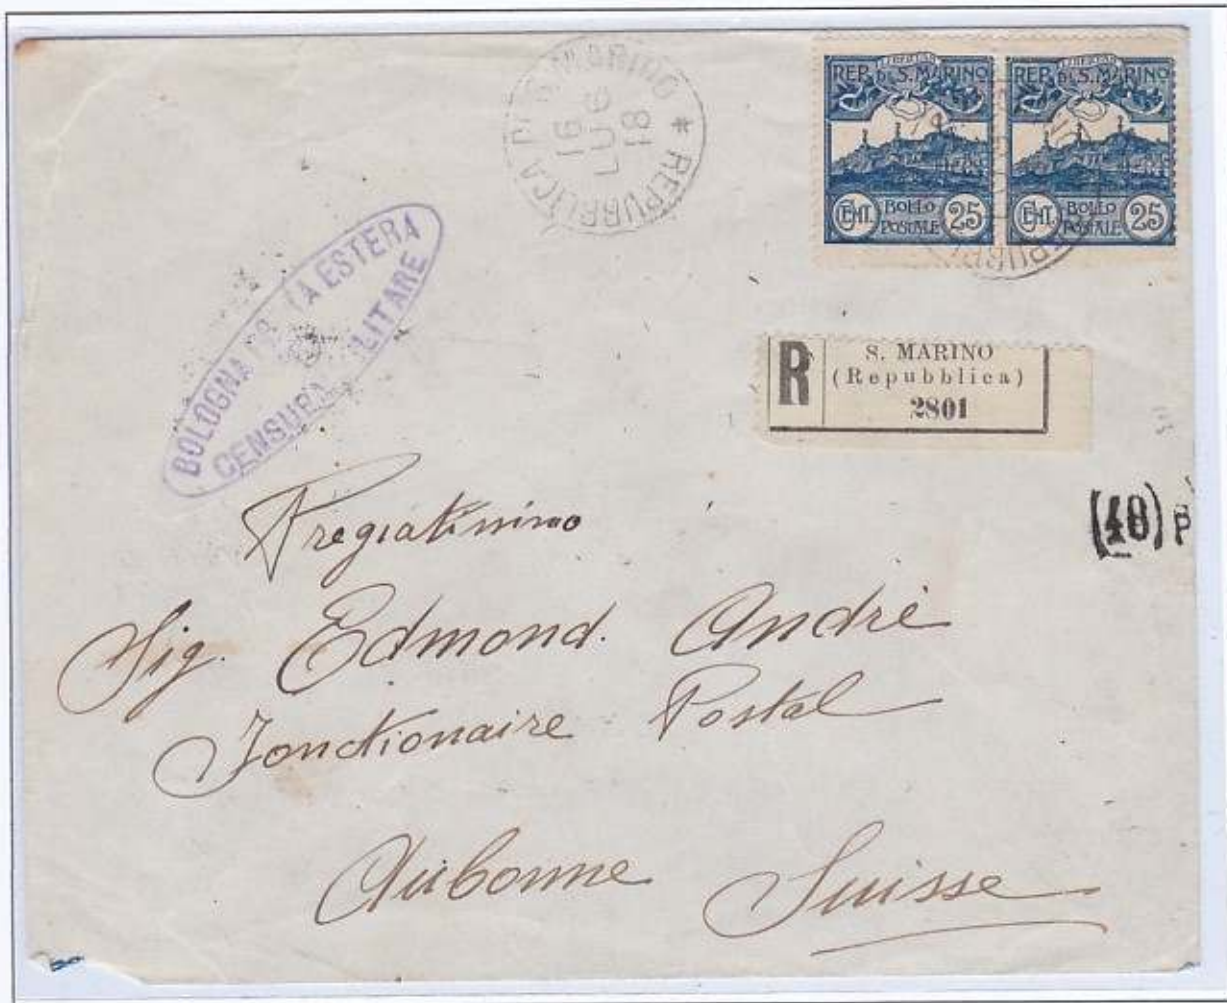 REPUBBLICA DI S. MARINO *
16
LUG
18
LIBERTAS
REP. DI S. MARINO
CENT. BOLLO POSTALE 25
LIBERTAS
REP. DI S. MARINO
CENT. BOLLO POSTALE 25
BOLOGNA ESTERA
CENSURA MILITARE
R
S. MARINO
(Repubblica)
2801
(48) P
Pregiatissimo
Sig. Edmond. André
Fonctionaire Postal
Aubonne Suisse